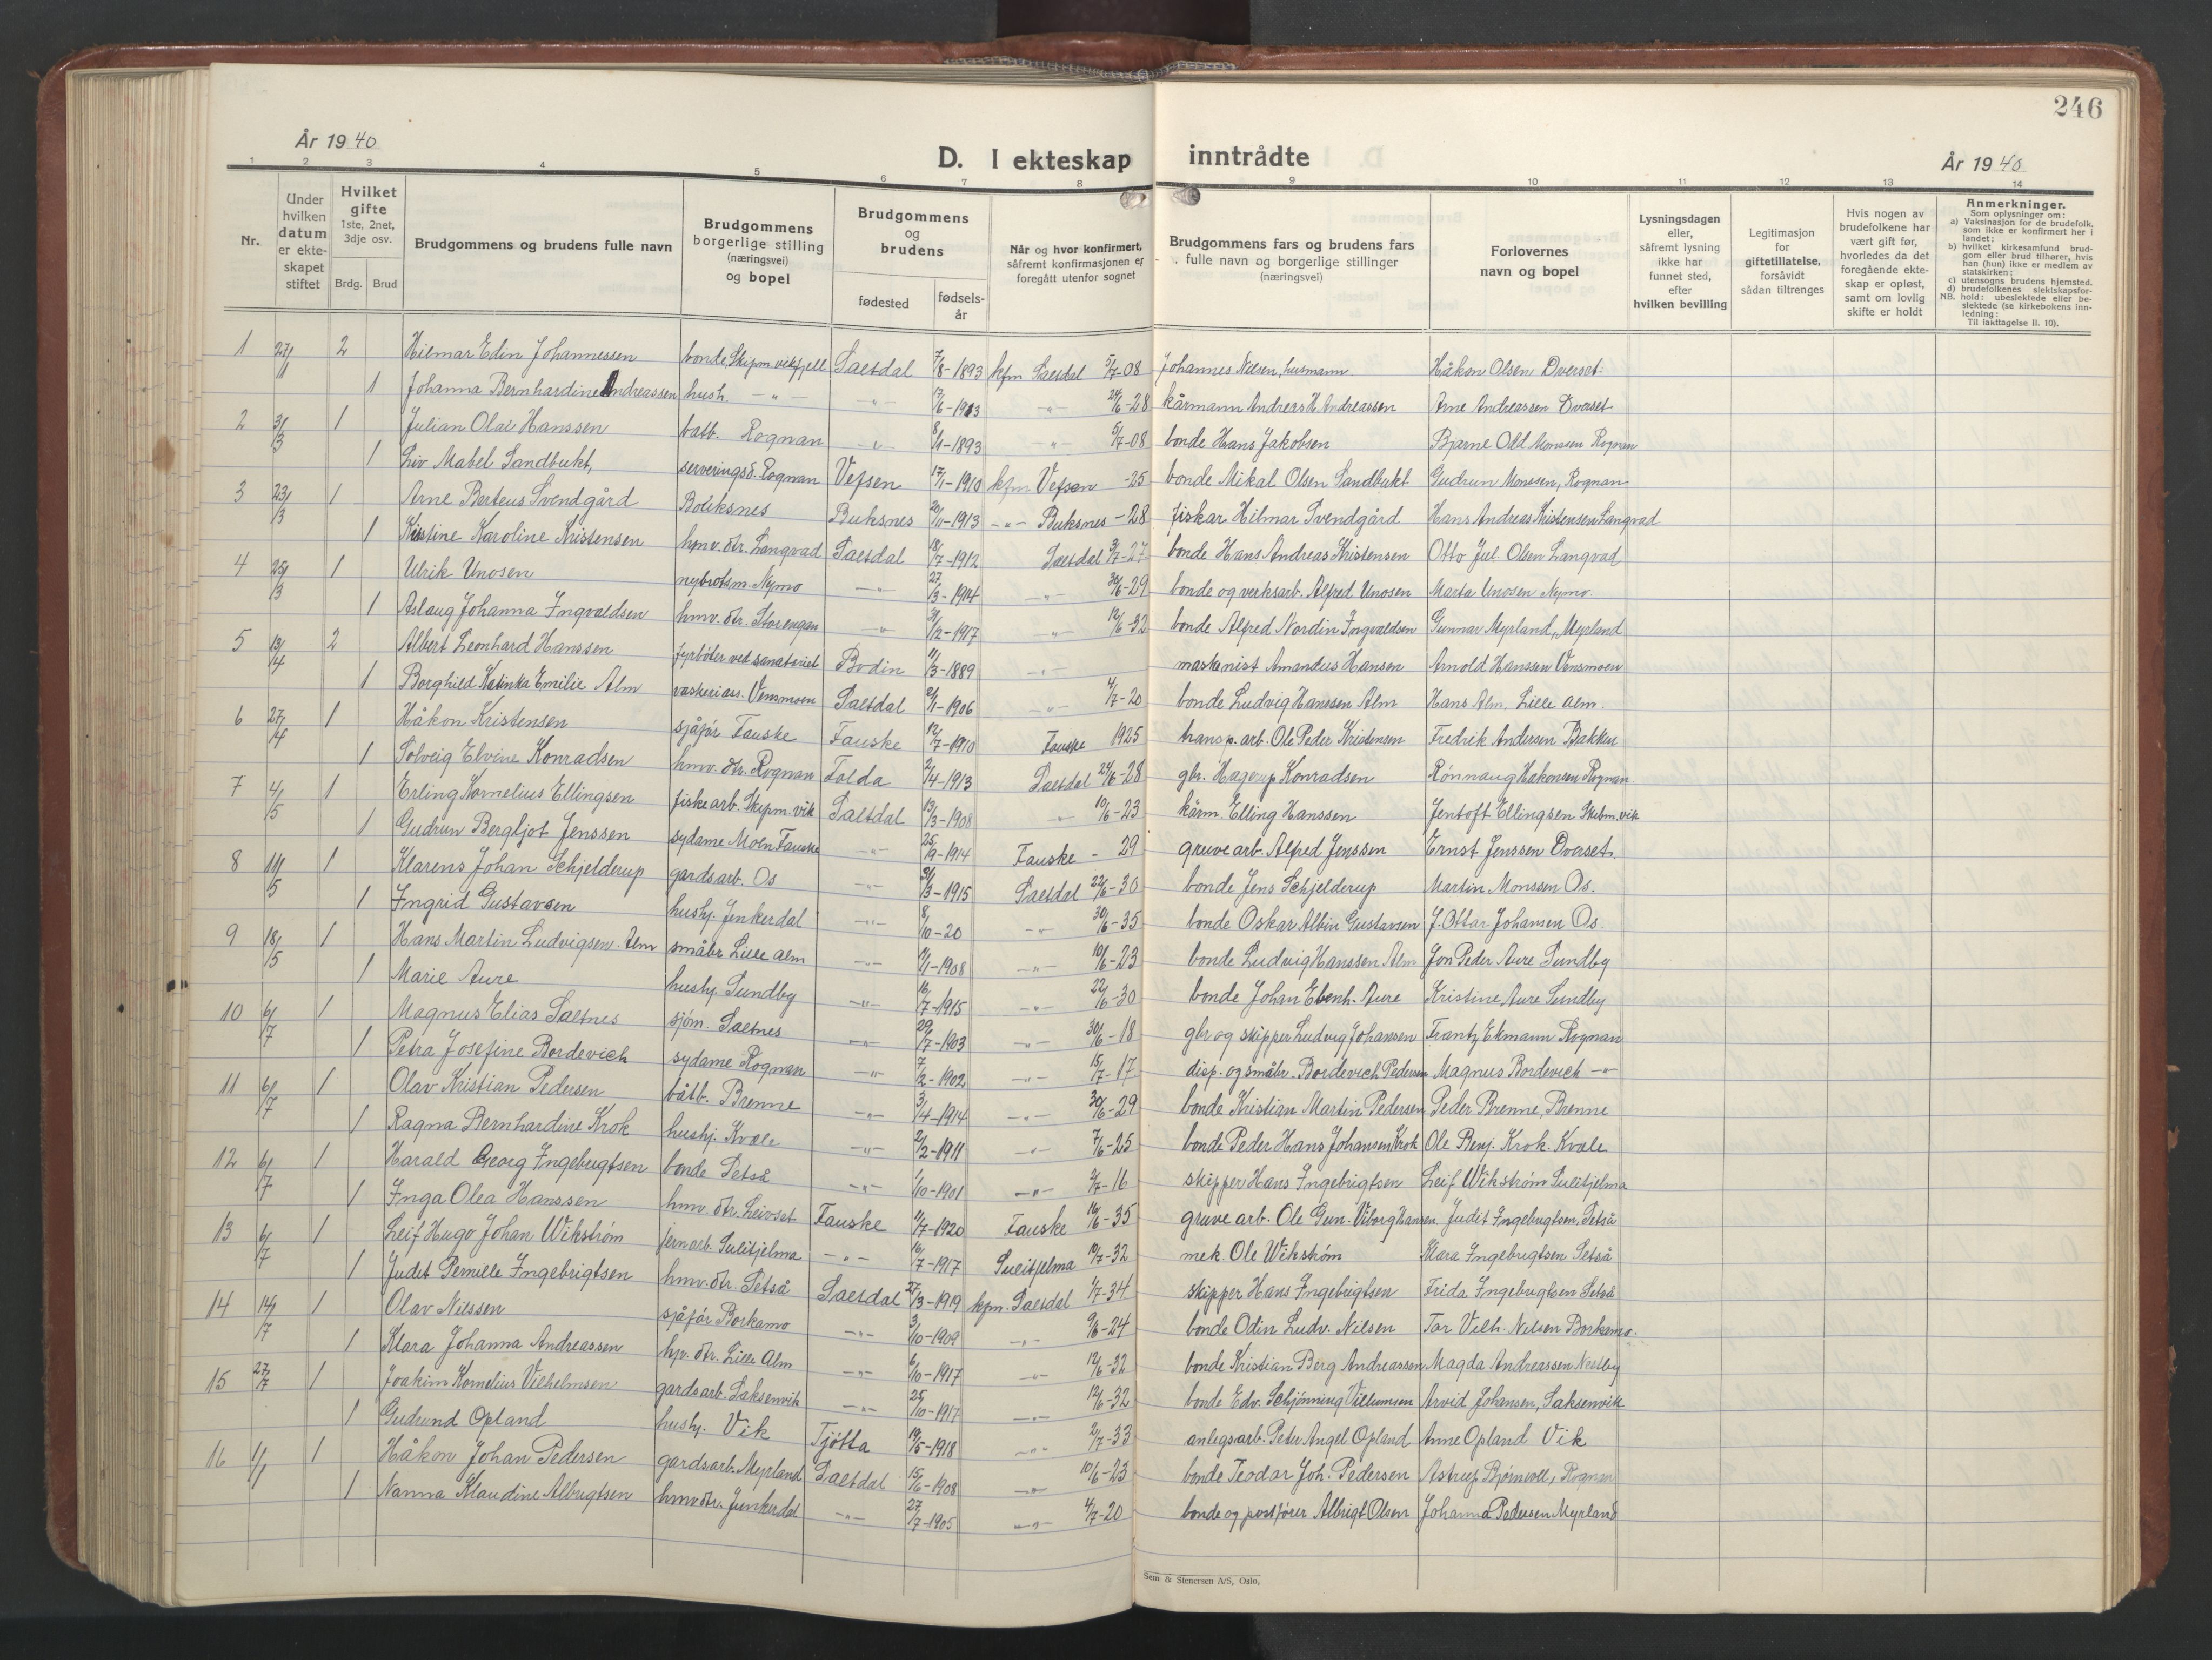 246
År 1940
D. I ekteskap inntrådte
År 1940
1 2 3 4 5 6 7 8 9 10 11 12 13 14
Nr.
Under hvilken datum er ekteskapet stiftet
Hvilket gifte 1ste, 2net, 3dje osv.
Brdg. Brud
Brudgommens og brudens fulle navn
Brudgommens borgerlige stilling (næringsvei) og bopel
Brudgommens og brudens
fødested
fødselsår
Når og hvor konfirmert, såfremt konfirmasjonen er foregått utenfor sognet
Brudgommens fars og brudens fars fulle navn og borgerlige stillinger (næringsvei)
Forlovernes navn og bopel
Lysningsdagen eller, såfremt lysning ikke har funnet sted, efter hvilken bevilling
Legitimasjon for giftetillatelse, forsåvidt sådan tiltrenges
Hvis nogen av brudefolkene har vært gift før, hvorledes da det foregående ekteskap er opløst, samt om lovlig skifte er holdt
Anmerkninger.
Som oplysninger om:
a) Vaksinasjon for de brudefolk, som ikke er konfirmert her i landet;
b) hvilket kirkesamfund brudgom eller brud tilhører, hvis han (hun) ikke er medlem av statskirken;
c) utensogns brudens hjemsted.
d) brudefolkenes slektskapsforhold: ubeslektede eller beslektede (se kirkebokens innledning:
NB. Til iakttagelse II. 10).
1 27/1 2 Hilmar Edin Johannessen bonde, Skipm.vikfjell Saltdal 7/8-1893 kfm Saltdal 5/7-08 Johannes Nilsen, husmann Håkon Olsen Dverset
1 Johanna Bernhardine Andreassen hush. -"- -"- 17/6-1913 -"- 24/6-28 kårmann Andreas H. Andreassen Arne Andreassen Dverset
2 31/3 1 Julian Olai Hanssen båtb. Rognan -"- 8/1-1893 -"- 5/7-08 bonde Hans Jakobsen Bjarne Odd Monsen Rognan
1 Liv Mabel Sandbukt, serveringsd. Rognan Vefsen 17/1-1910 kfm Vefsen -25 bonde Mikal Olsen Sandbukt Gudrun Monssen, Rognan
3 23/3 1 Arne Berteus Svendgård Boliksnes Buksnes 20/11-1913 -"- Buksnes -28 fiskar Hilmar Svendgård Hans Andreas Kristensen Langvad
1 Kristine Karoline Kristensen hmv. dtr. Langvad Saltdal 18/7-1912 Saltdal 3/7-27 bonde Hans Andreas Kristensen Otto Jul. Olsen Langvad
4 25/3 1 Ulrik Unosen nybrotsm. Nymo -"- 27/3-1914 -"- 30/6-29 bonde og verksarb. Alfred Unosen Marta Unosen Nymo
1 Aslaug Johanna Ingvaldsen hmv. dtr. Storengan -"- 31/12-1917 -"- 12/6-32 bonde Alfred Nordin Ingvaldsen Gunnar Myrland, Myrland
5 13/4 2 Albert Leonhard Hanssen fyrbøter ved sanatoriet Bodin 11/3-1889 -"- maskinist Amandus Hansen Arnold Hanssen Vensmoen
1 Borghild Katinka Emilie Alm vaskeriass. Vensmoen Saltdal 21/1-1906 -"- 4/7-20 bonde Ludvig Hanssen Alm Hans Alm, Lille alm.
6 27/4 1 Håkon Kristensen sjåfør Fauske Fauske 12/7-1910 Fauske 1925 transp. arb. Ole Peder Kristensen Fredrik Andersen Bakken
1 Solveig Elvine Konradsen hmv. dtr. Rognan Folda 2/4-1913 Saltdal 24/6-28 gbr. Hagerup Konradsen Rønnaug Hakonsen Rognan
7 4/5 1 Erling Kornelius Ellingsen fiskearb. Skipm.vik Saltdal 13/3-1908 -"- 10/6-23 kårm. Elling Hanssen Jentoft Ellingsen Skibm.vik
1 Gudrun Bergljot Jenssen sydame Moen Fauske -"- 25/9-1914 Fauske - 29 gruvearb. Alfred Jenssen Ernst Jenssen Dverset
8 11/5 1 Klarens Johan Schjelderup gardsarb. Os -"- 31/3-1915 Saltdal 22/6-30 bonde Jens Schjelderup Martin Monssen Os.
1 Ingrid Gustavsen hushj. Junkerdal -"- 8/10-20 -"- 30/6-35 bonde Oskar Albin Gustavsen J. Ottar Johansen Os.
9 18/5 1 Hans Martin Ludvigsen Alm småbr. Lille alm -"- 11/1-1908 -"- 10/6-23 bonde Ludvig Hanssen Alm Jon Peder Aure Sundby
1 Marie Aure hushj. Sundby -"- 16/7-1915 -"- 22/6-30 bonde Johan Ebenh. Aure Kristine Aure Sundby
10 6/7 1 Magnus Elias Saltnes sjøm. Saltnes -"- 29/7-1903 -"- 30/6-18 gbr og skipper Ludvig Johansen Frantz Ekmann Rognan
1 Petra Josefine Bordevich sydame Rognan -"- 7/2-1902 -"- 15/7-17 disp. og småbr. Bordevich Pedersen Magnus Bordevich -"-
11 6/7 1 Olav Kristian Pedersen båtb. Brenne -"- 3/4-1914 -"- 30/6-29 bonde Kristian Martin Pedersen Peder Brenne, Brenne
1 Ragna Bernhardine Krok hushj. Kvæle -"- 2/2-1911 -"- 7/6-25 bonde Peder Hans Johansen Krok Ole Benj. Krok. Kvæle
12 6/7 1 Harald Georg Ingebrigtsen bonde Setså -"- 1/10-1901 -"- 2/7-16 skipper Hans Ingebrigtsen Leif Wikstrøm Sulitjelma
1 Inga Olea Hanssen hmv. dtr. Leivset Fauske 11/7-1920 Fauske 16/6-35 gruvearb. Ole Gun. Viborg Hansen Judit Ingebrigtsen, Setså
13 6/7 1 Leif Hugo Johan Wikstrøm jernarb. Sulitjelma -"- 16/7-1917 Sulitjelma 10/7-32 mek. Ole Wikstrøm Klara Ingebrigtsen Setså
1 Judit Pernille Ingebrigtsen hmv. dtr. Setså Saltdal 27/3-1919 kfm. Saltdal 1/7-34 skipper Hans Ingebrigtsen Frida Ingebrigtsen Setså
14 14/7 1 Olav Nilssen sjåfør Borkamo -"- 3/10-1909 -"- 9/6-24 bonde Odin Ludv. Nilsen Tor Vilh. Nilsen Borkamo.
1 Klara Johanna Andreassen hjv. dtr. Lille Alm -"- 6/10-1917 -"- 12/6-32 bonde Kristian Berg Andreassen Magda Andreassen Nestby
15 27/7 1 Joakim Kornelius Vilhelmsen gardsarb. Saksenvik -"- 25/10-1917 -"- 12/6-32 bonde Edv. Schjønning Villumsen Arvid Johansen, Saksenvik
1 Gudrund Opland hushj. Vik Tjøtta 19/5-1918 -"- 2/7-33 anlegsarb. Peter Angel Opland Anne Opland Vik
16 1/1 1 Håkon Johan Pedersen gardsarb. Myrland Saltdal 15/6-1908 -"- 10/6-23 bonde Teodor Joh. Pedersen Astrup Bjørnvoll, Rognan
1 Nanna Klaudine Albrigtsen hmv dtr. Junkerdal -"- 27/7-1905 -"- 4/7-20 bonde og postfører Albrigt Olsen Johanna Pedersen Myrland
Sem & Stenersen A/S, Oslo.